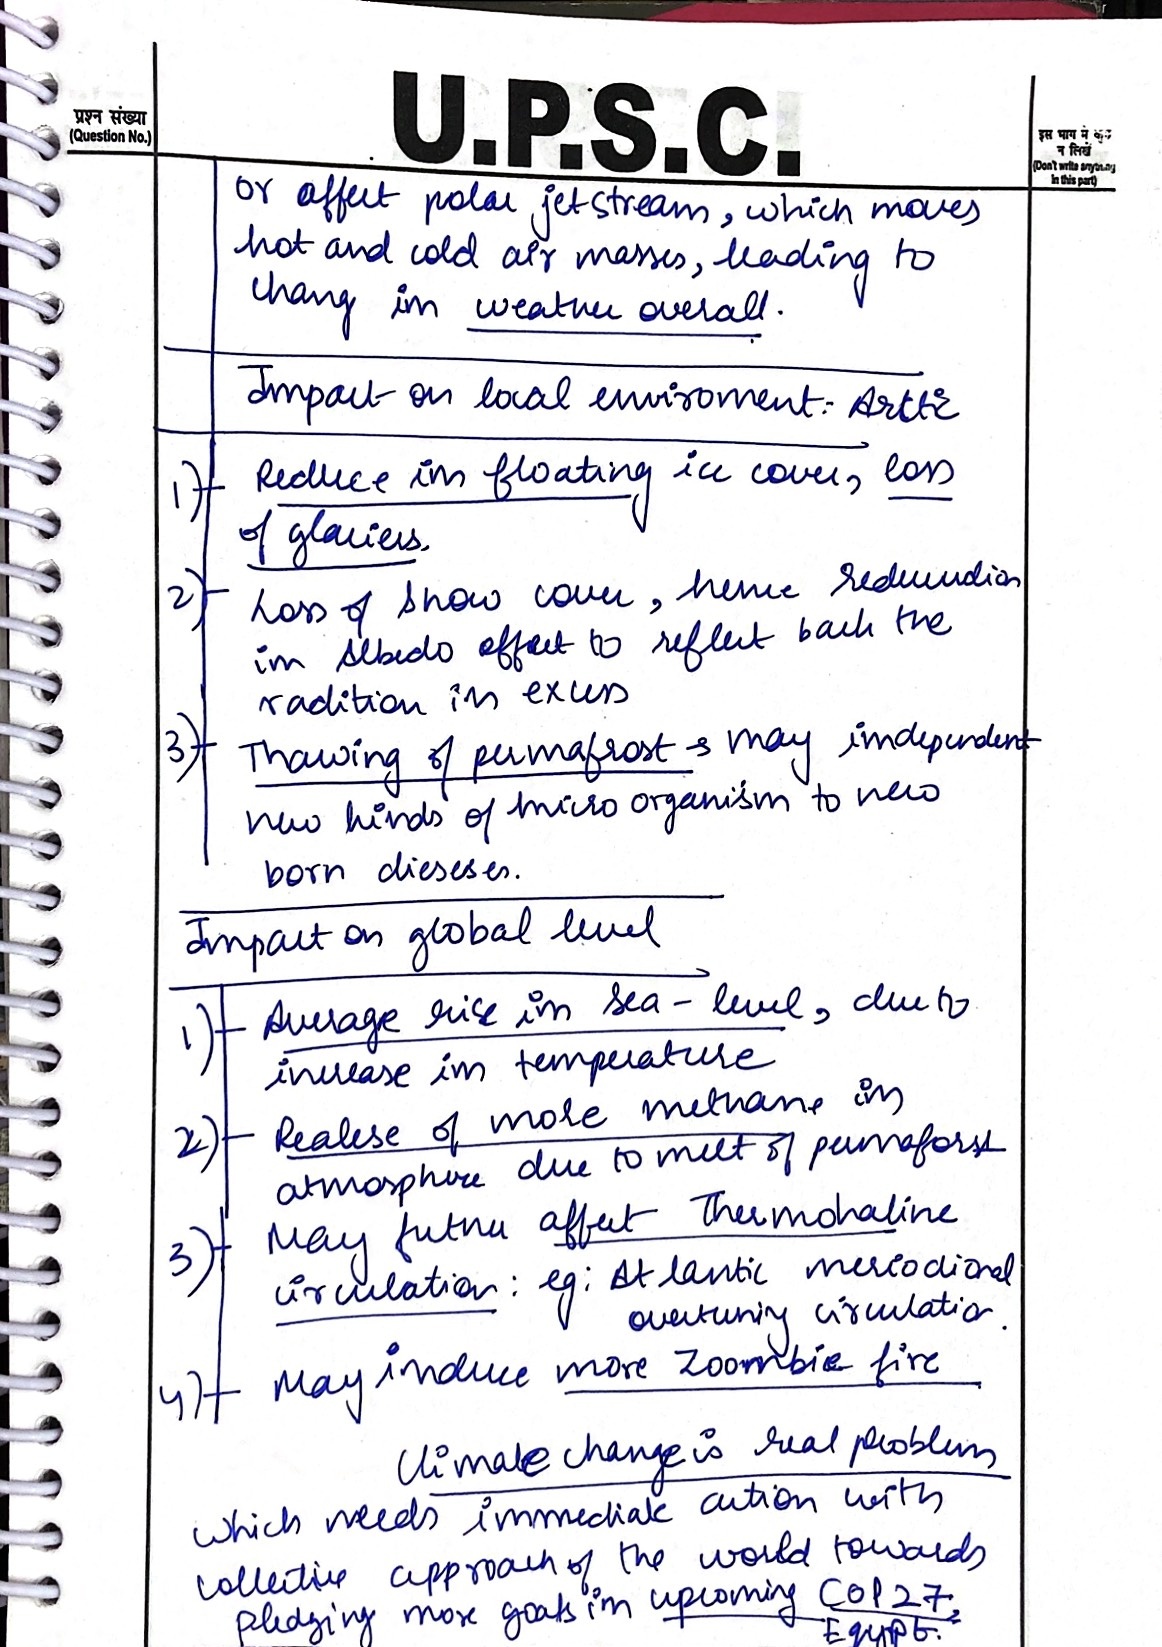 प्रश्न संख्या
(Question No.)
U.P.S.C.
इस भाग में कुछ
न लिखें
(Don't write anything
in this part)
or affect polar jetstream, which moves
hot and cold air masses, leading to
chang in weather overall.
Impact on local enviroment: Arctic
1) Reduce in floating ice cover, loss
of glaciers.
2) Loss of snow cover, hence
in Albedo effect to reflect back the
radition in excess
3) Thawing of permafrost → may independent
new kinds of micro organism to new
born dieseses.
Impact on global level
1) Average rise in sea-level, due to
increase in temperature
2) Realese of more methane in
atmosphere due to melt of permaforst
3) May futhu affect Thermohaline
circulation: eg: Atlantic meriodional
overtuning circulation.
4) May induce more Zoombie fire
Climate change is real problem
which needs immediate action with
collective approach of the world towards
pledging more goals in upcoming COP27,
Egypt.